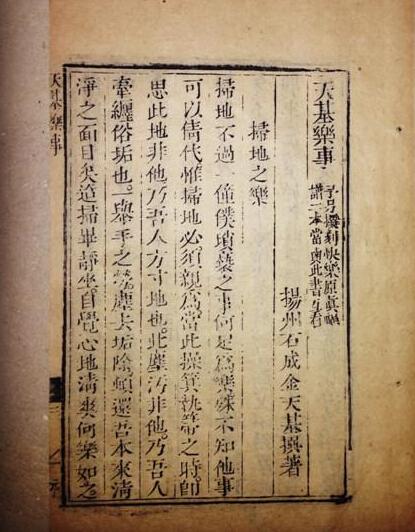 天基樂事
予另撰刻快樂原真
譜二本當與此書互看
揚州石成金天基撰著
掃地之樂
掃地不過一僮僕瑣褻之事何足爲樂殊不知他事
可以倩代惟掃地必須親爲當此操箕執帚之時卽
思此地非他乃吾人方寸地也此塵污非他乃吾人
牽纏俗垢也一舉手之勞塵去垢除頓還吾本來清
淨之面目矣迨掃畢靜坐自覺心地清爽何樂如之
天基樂事
三